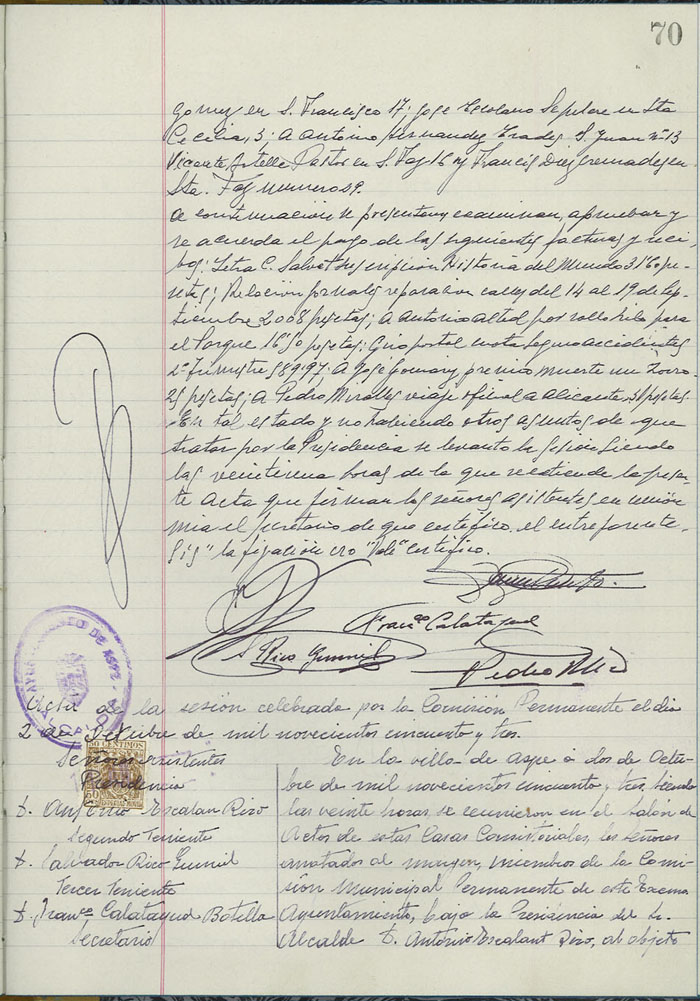 70
Gomez en S. Francisco 17; Jose Escolano Sepulcre en Sta
Cecilia, 3; A Antonio Hernandez Prades S. Juan nº 13
Vicente Botella Pastor en S. Faz 16 y Francis Diez Cremades en
Sta. Faz numero 29.
A continuación se presentan, examinan, aprueban y
se acuerda el pago de las siguientes facturas y reci
bos; Letra C. Salvat suscripcion Historia del Mundo 316 pe
setas; Relacion jornales reparacion calles del 14 al 19 de Sep
tiembre 2008 pesetas; A Antonio Alted por rollo hilo para
el Parque 16'50 pesetas; Giro postal cuota Seguro accidentes
trimestre 589'97; A José premio muerte un zorro
25 pesetas; A Pedro Miralles viaje oficial a Alicante, pesetas
En tal estado y no habiendo otros asuntos de que
tratar por la Presidencia se levanto la sesion siendo
las veintiuna horas de la que se extiende la presen
te acta que firman los señores asistentes en union
mia el secretario de que certifico. el entreparente
sis" la fijación "Vale" Certifico.
Franco Calatayud
S Rico Gumiel
Pedro
AYUNTAMIENTO DE ASPE
ALCALDIA
50 CENTIMOS
Acta de la sesión celebrada por la Comisión Permanente el dia
2 de Octubre de mil novecientos cincuenta y tres.
Señores asistentes
Presidencia
D. Antonio Escalant Riso
Segundo Teniente
D. Salvador Rico Gumiel
Tercer Teniente
D. Franco Calatayud Botella
Secretario
En la villa de Aspe a dos de Octu
bre de mil novecientos cincuenta y tres, siendo
las veinte horas, se reunieron en el Salón de
Actos de estas Casas Consistoriales, los señores
anotados al margen, miembros de la Comi
sión Municipal Permanente de este Excmo
Ayuntamiento, bajo la Presidencia del Sr.
Alcalde D. Antonio Escalant Riso, al objeto